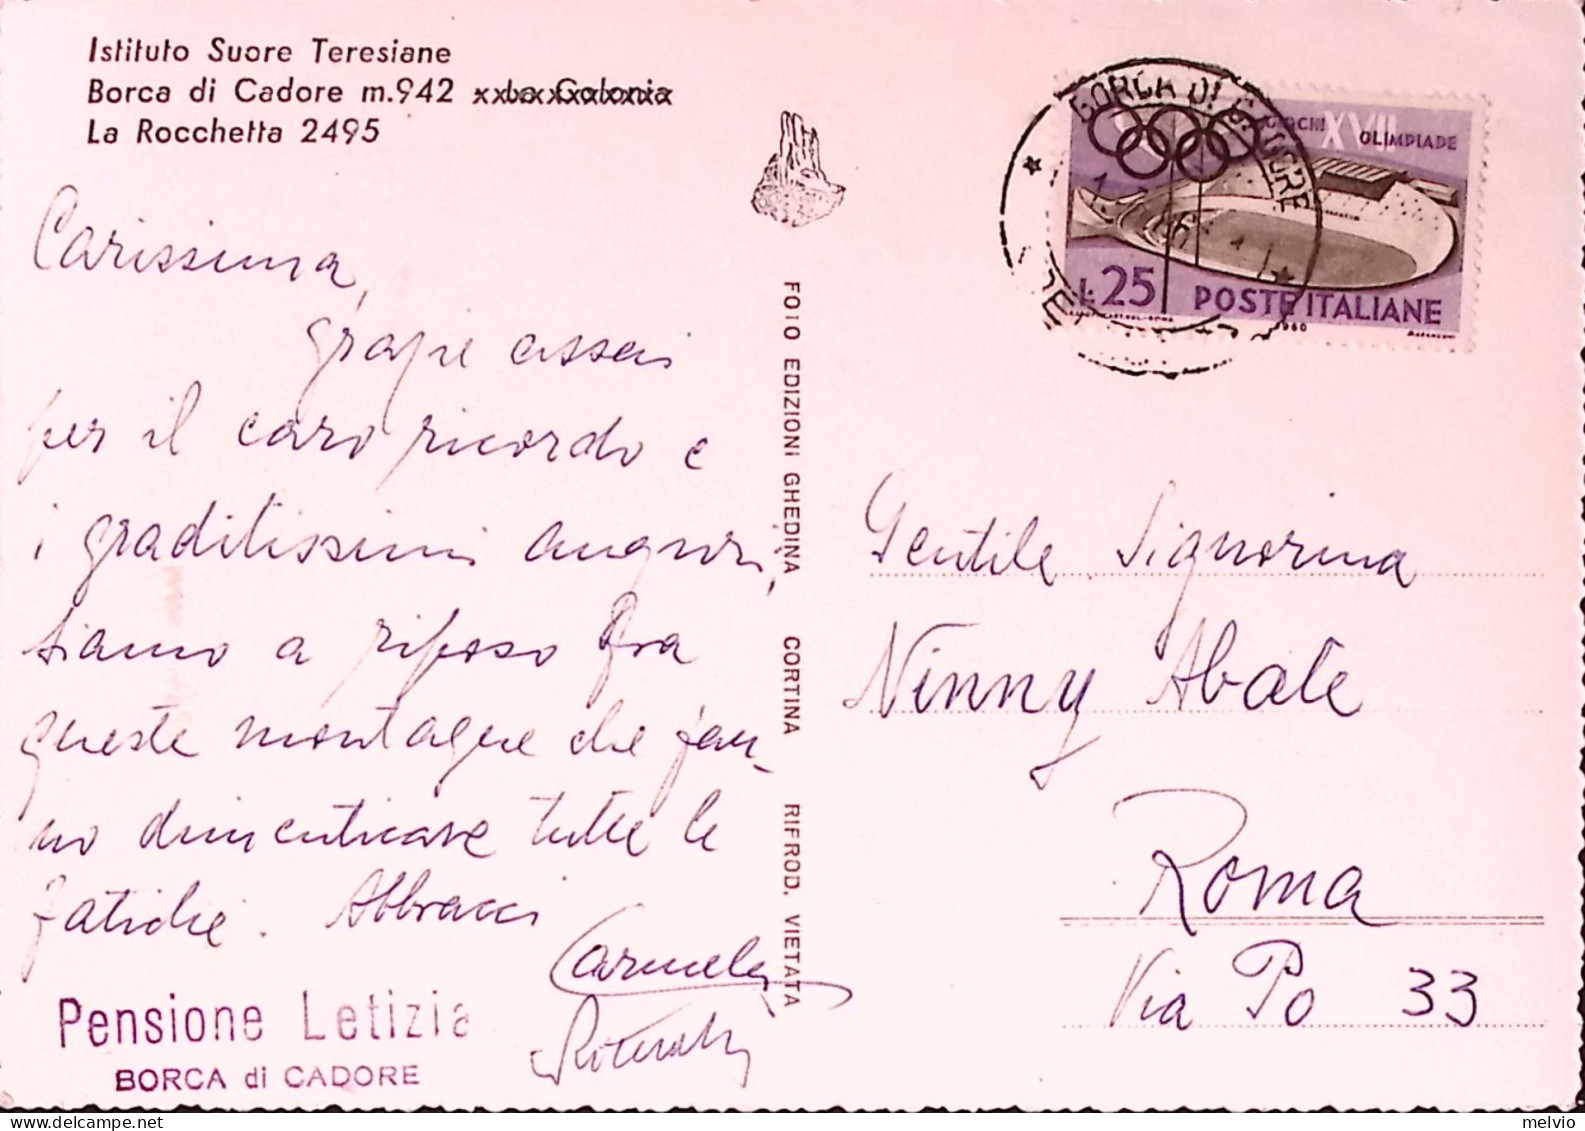 Istituto Suore Teresiane
Borca di Cadore m.942 xxLaxxColonia
La Rocchetta 2495
Carissima,
grazie assai
per il caro ricordo e
i graditissimi auguri,
siamo a riposo fra
queste montagne che fan-
no dimenticare tutte le
fatiche. Abbracci
Carmela
Pensione Letizia
BORCA di CADORE
FOTO EDIZIONI GHEDINA CORTINA RIFROD. VIETATA
BORCA DI CADORE
GIOCHI XVII OLIMPIADE
L.25 POSTE ITALIANE
1960
Gentile Signorina
Ninny Abate
Roma
Via Po 33
melvio